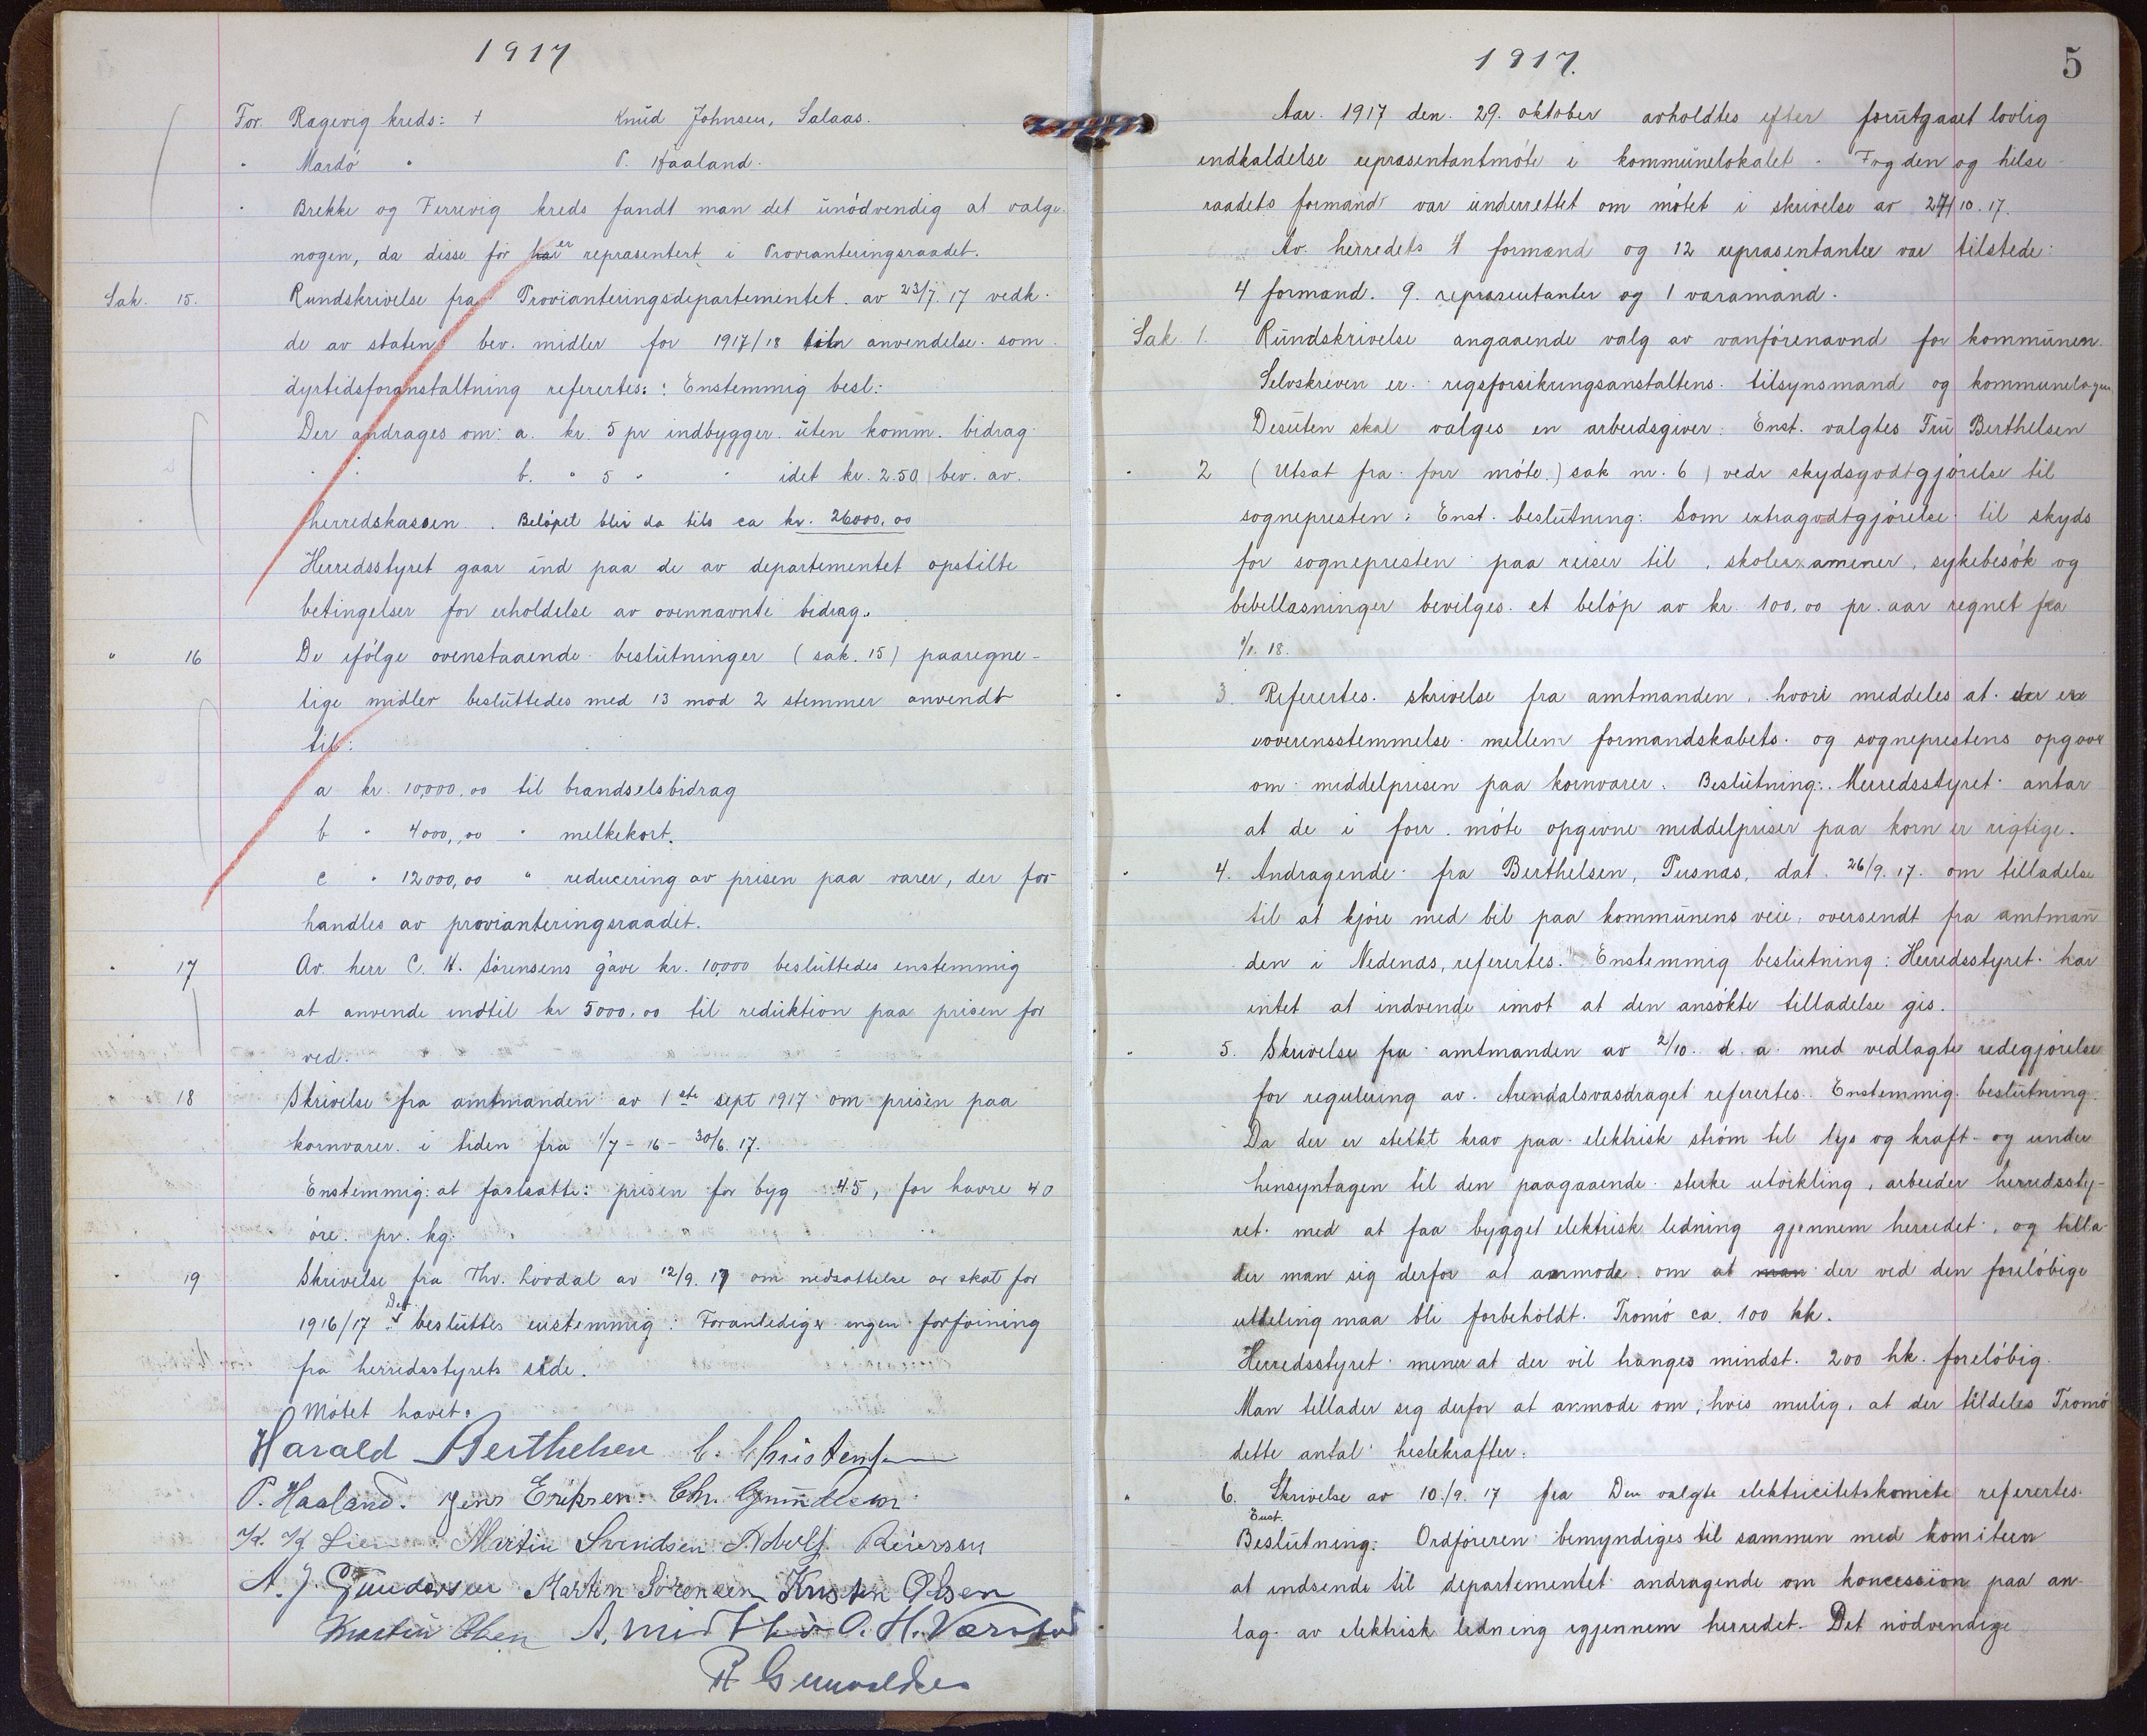 1917
For. Ragevig kreds: + Knud Johnsen, Salaas.
" Mardö " P. Haaland.
" Brekke og Ferrevig kreds fandt man det unödvendig at valge
nogen, da disse för er repræsentert i Provianteringsraadet.
Sak. 15. Rundskrivelse fra Provianteringsdepartementet av 23/7. 17 vedk.
de av staten bev. midler for 1917/18 til anvendelse som
dyrtidsforanstaltning refertes: Enstemmig besl:
Der andrages om: a. kr. 5 pr indbygger uten komm. bidrag
" " b. " 5 " " idet kr. 2.50 bev. av.
herredskassen. Belöpet blir da tils ca kr. 26000,00
Herredsstyret gaar ind paa de av departementet opstilte
betingelser for erholdelse av ovennævnte bidrag.
" 16 De ifölge ovenstaaende beslutninger (sak. 15) paaregne-
lige midler besluttedes med 13 mod 2 stemmer anvendt
til:
a kr. 10,000,00 til brændselsbidrag
b " 4000,00 " melkekort.
c " 12000,00 " reducering av prisen paa varer, der for
handles av provianteringsraadet.
" 17 Av herr C. H. Sörensens gave kr. 10,000 besluttedes enstemmig
at anvende indtil kr 5000,00 til reduktion paa prisen for
ved.
18 Skrivelse fra amtmanden av 1ste sept 1917 om prisen paa
kornvarer i tiden fra 1/7 - 16 - 30/6. 17.
Enstemmig at fastsatte: prisen for byg 45, for havre 40
öre. pr. kg.
" 19 Skrivelse fra Thv. Lovdal av 12/9. 17 om nedsættelse av skat for
1916/17. Det besluttes enstemmig: Foranlediger ingen forföining
fra herredsstyrets side.
Mötet hævet.
Harald Berthelsen C. Christensen
P. Haaland. Jens Eriksen. Chr. Gundersen
Lien Martin Svendsen Adolf Reiersen
A. J. Gundersen Martin Sörensen Kristen Olsen
Martin Olsen A. O. H. Værstad
R Gunvaldsen
1917. 5
Aar 1917 den 29. oktober avholdtes efter forutgaaet lovlig
indkaldelse repræsentantmöte i kommunelokalet. Fogden og helse
raadets formand var underrettet om mötet i skrivelse av 27/10. 17.
Av herredets 4 formænd og 12 repræsentanter var tilstede:
4 formænd. 9. repræsentanter og 1 varamand.
Sak 1. Rundskrivelse angaaende valg av vanförenævnd for kommunen.
Selvskreven er rigsforsikringsanstaltens tilsynsmand og kommunelægen
Desuten skal vælges en arbeidsgiver: Enst. valgtes Fru Berthelsen
" 2 (Utsat fra forr möte) sak nr. 6) vedr skydsgodtgjörelse til
sognepresten: Enst. beslutning: Som extragodtgjörelse til skyds
for sognepresten paa reiser til skoleexamener, sykebesök og
bibellæsninger bevilges et belöp av kr. 100,00 pr. aar regnet fra
1/1. 18.
" 3. Refertes skrivelse fra amtmanden, hvori meddeles at der er
uoverensstemmelse mellem formandskabets og sogneprestens opgave
om middelprisen paa kornvarer. Beslutning: Herredsstyret antar
at de i forr. möte opgivne middelpriser paa korn er rigtige.
" 4. Andragende fra Berthelsen, Pusnæs, dat. 26/9. 17. om tilladelse
til at kjöre med bil paa kommunens veie, oversendt fra amtman
den i Nedenæs, refertes. Enstemmig beslutning: Herredsstyret har
intet at indvende imot at den ansökte tilladelse gis.
" 5. Skrivelse fra amtmanden av 2/10. d. a. med vedlagte redegjörelse
for regulering av Arendalsvasdraget refertes. Enstemmig beslutning.
Da der er sterkt krav paa elektrisk ström til lys og kraft - og under
hensyntagen til den paagaaende sterke utvikling, arbeider herredssty-
ret med at faa bygget elektrisk ledning gjennem herredet, og tilla
der man sig derfor at anmode om at man der ved den forelöbige
uttdeling maa bli forbeholdt Tromö ca. 100 hk.
Herredsstyret mener at der vil trænges mindst 200 hk. forelöbig.
Man tillader sig derfor at anmode om, hvis mulig, at der tildeles Tromö
dette antal hestekræfter.
" 6. Skrivelse av 10./9. 17 fra Den valgte elektricitetskomite refertes.
Enst.
Beslutning: Ordföreren bemyndiges til sammen med komiteen
at indsende til departementet andragende om koncession paa an-
læg av elektrisk ledning igjennem herredet. Det nödvendige